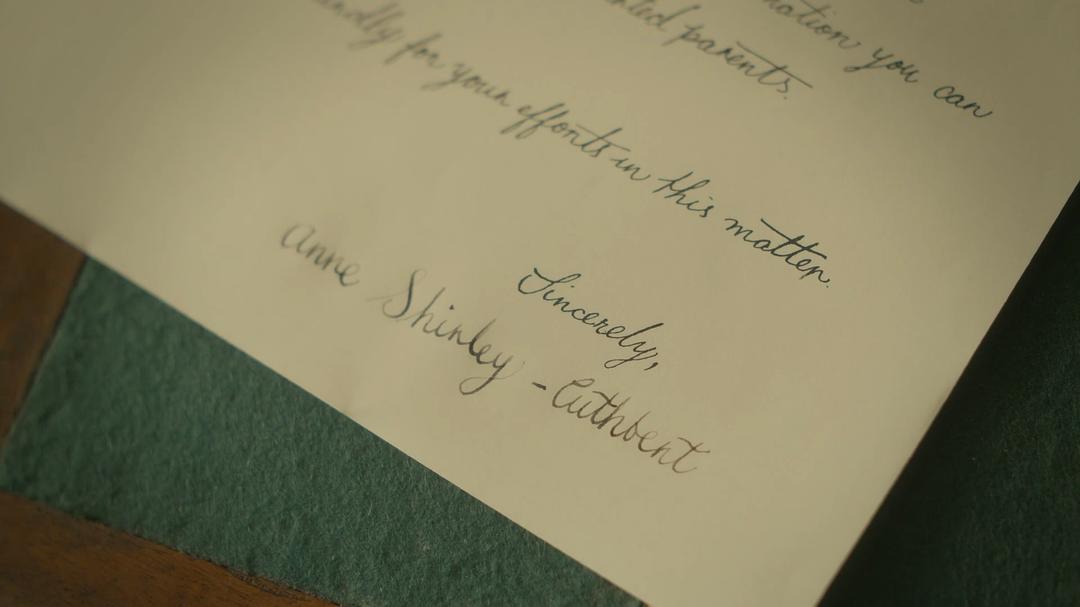 you can
parents.
for your efforts in this matter.
Sincerely,
Anne Shirley - Cuthbert